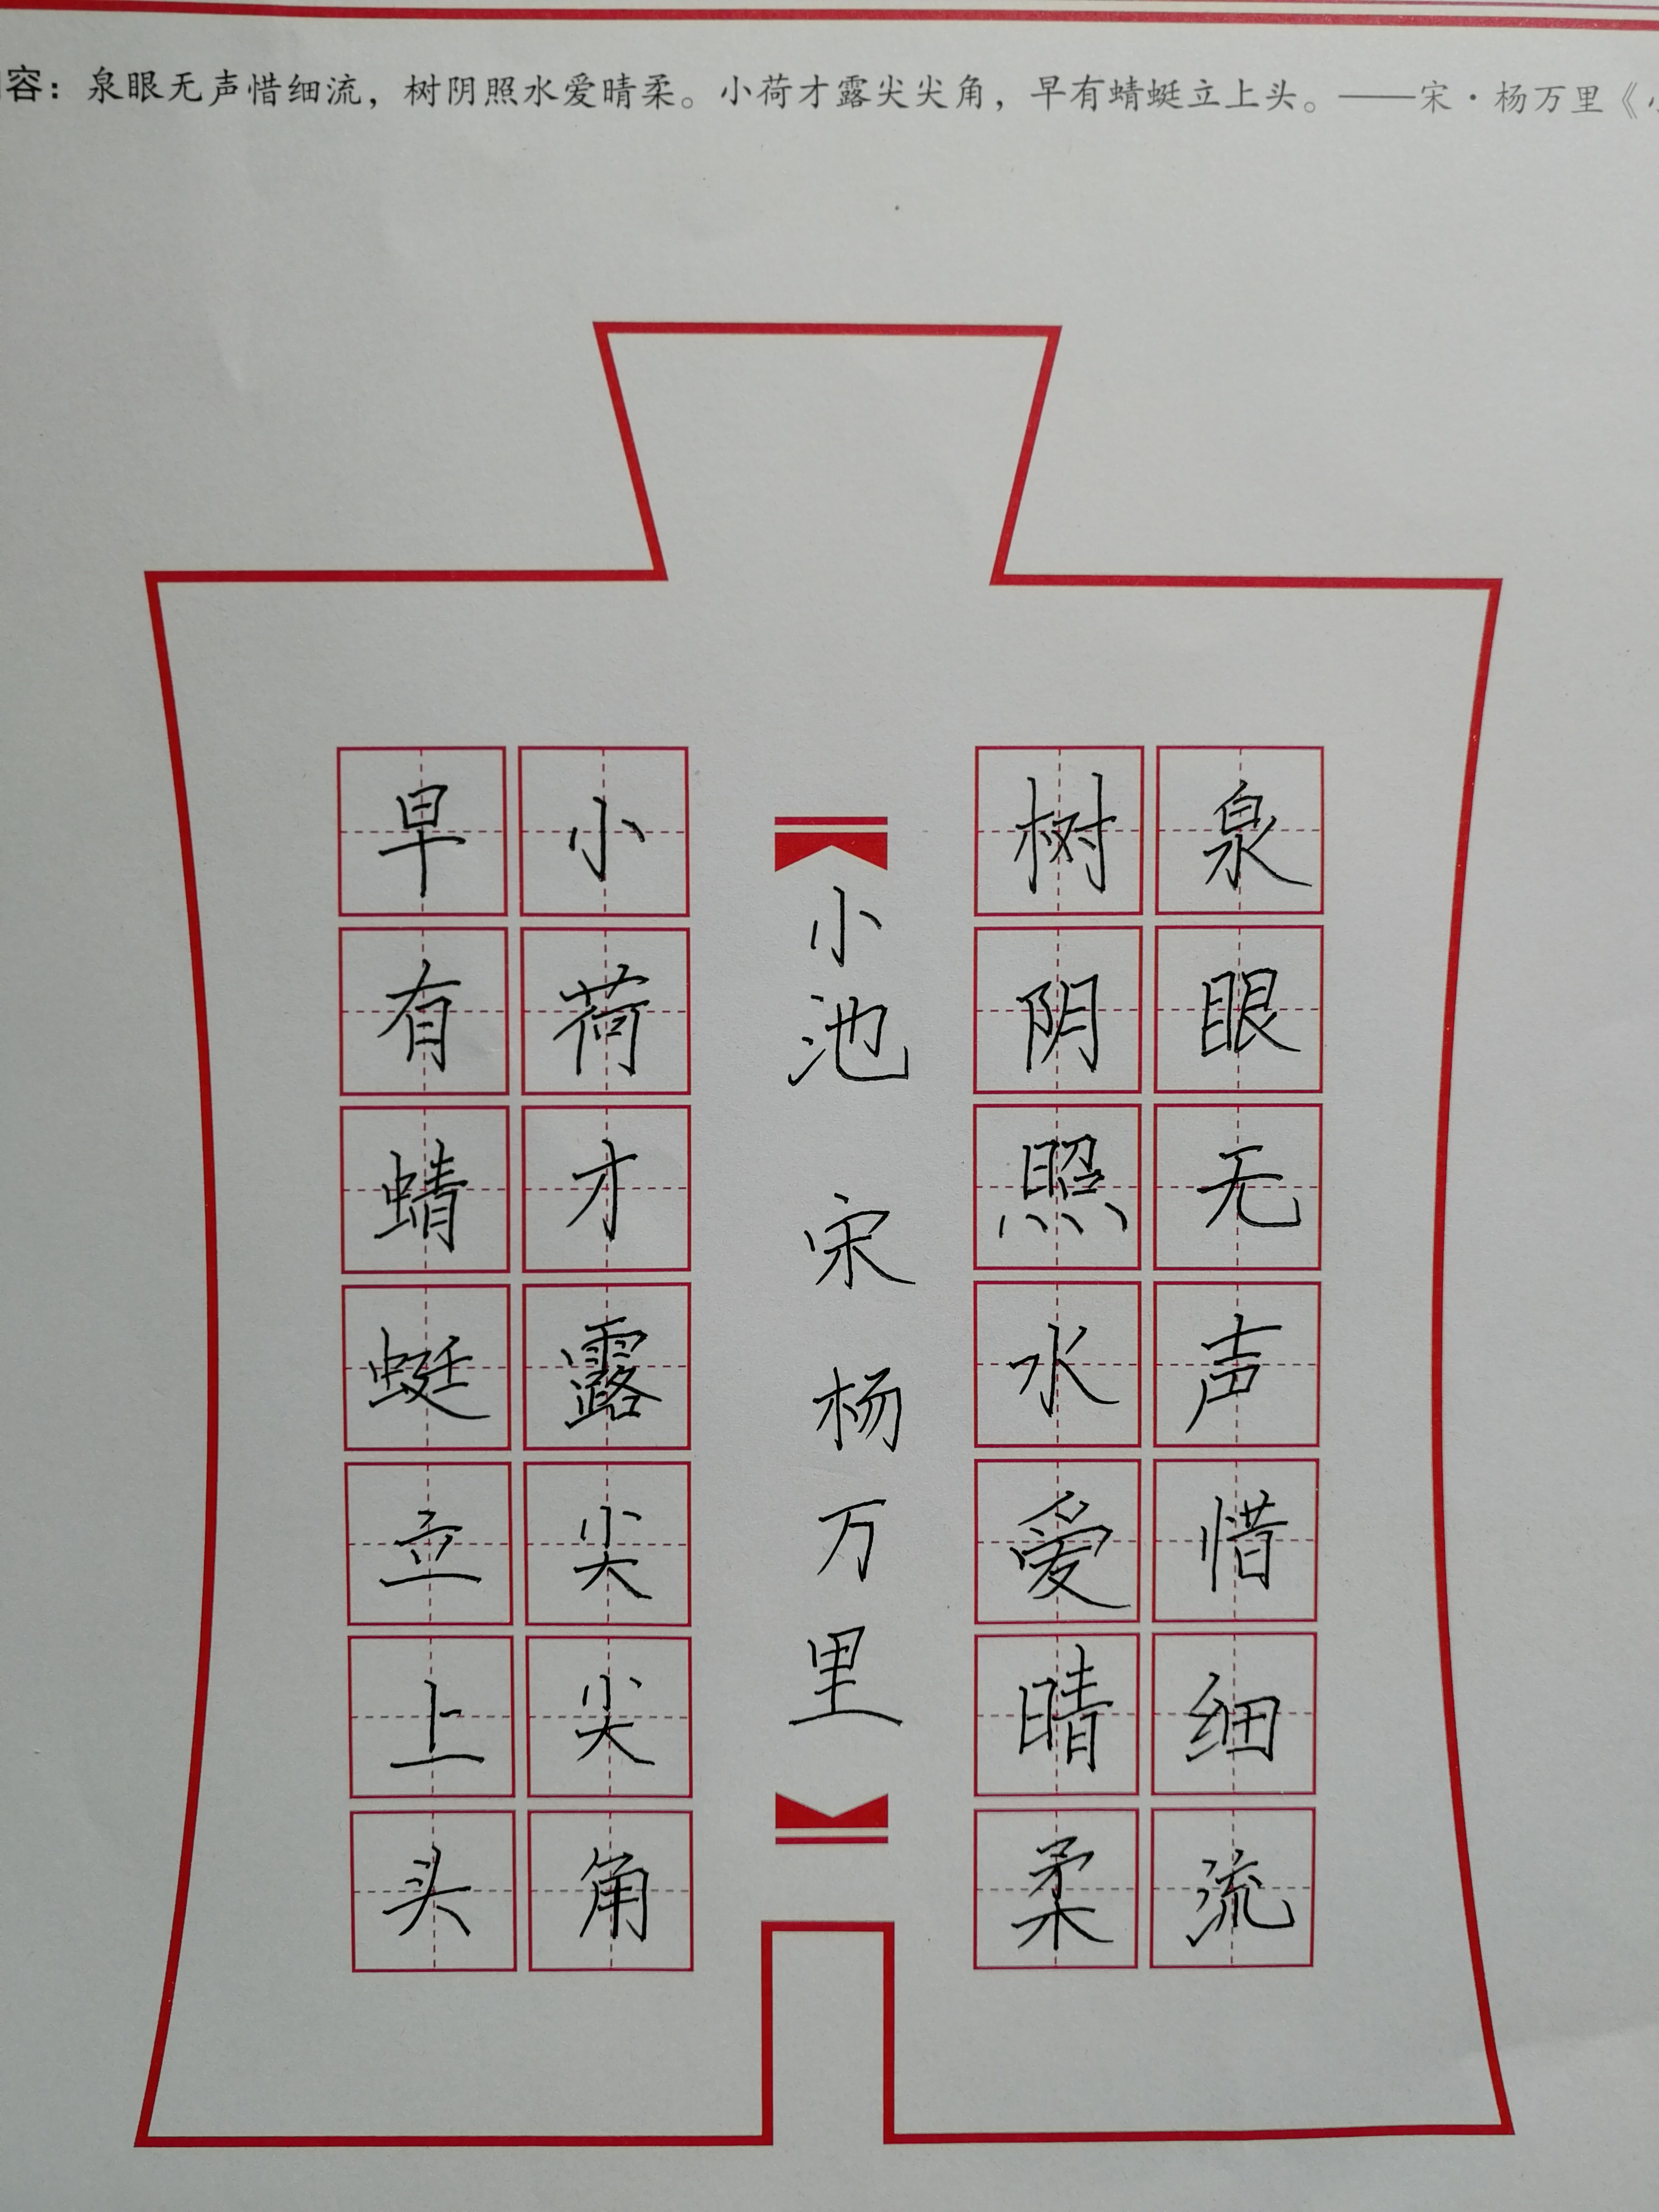 容：泉眼无声惜细流，树阴照水爱晴柔。小荷才露尖尖角，早有蜻蜓立上头。——宋·杨万里《小
泉眼无声惜细流
树阴照水爱晴柔
小池 宋 杨万里
小荷才露尖尖角
早有蜻蜓立上头